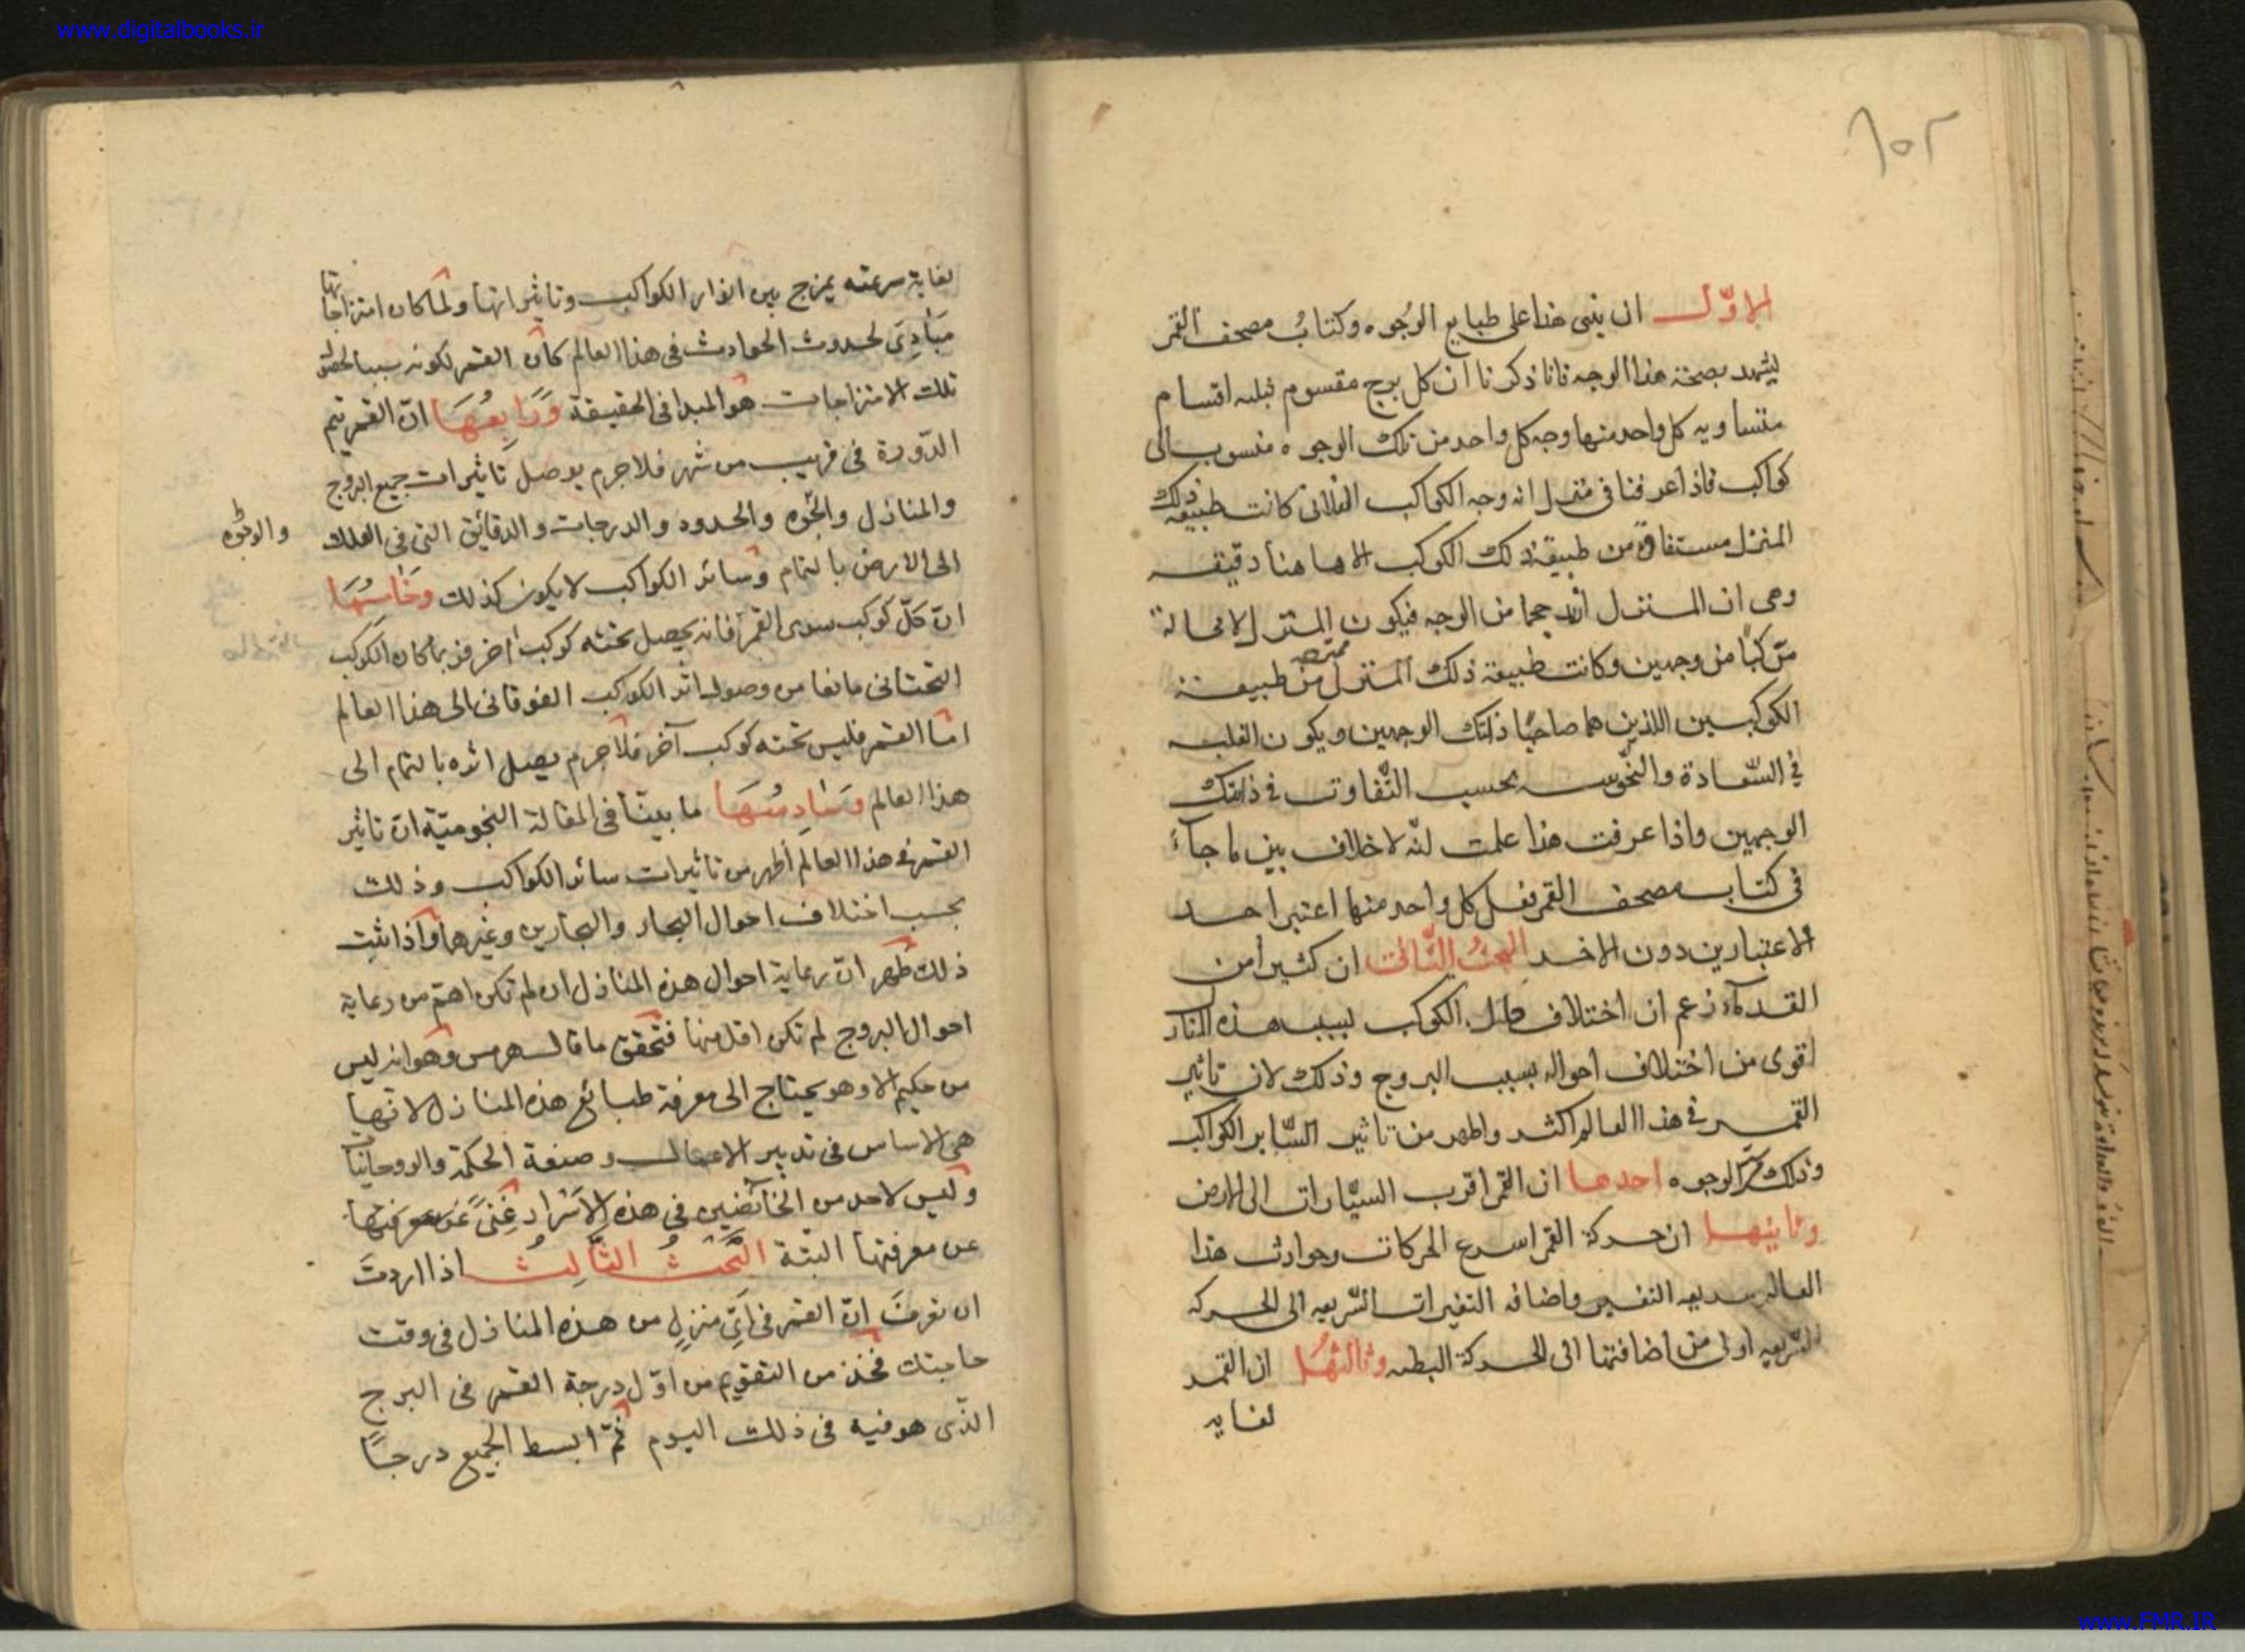 www.digitalbooks.ir
١٥٢
الاوّل ان يبنى هذا على طبايع الوُجوه وكتابُ مصحف القمر
يشهد بصحة هذا الوجه فانا ذكرنا ان كل برج مقسوم بثلثه اقسام
متساويه كل واحد منها وجه كل واحد من تلك الوجوه منسوب الى
كواكب فاذا عرفنا فى منزل انه وجه الكواكب الفلانى كانت طبيعة ذلك
المنزل مستفادة من طبيعة ذلك الكوكب الا هاهنا دقيقه
وهى ان المنزل ازيد حجما من الوجه فيكون المنزل لا محالة
مركبًا من وجهين وكانت طبيعة ذلك المنزل ممتزجة من طبيعة
الكوكبين اللذين هما صاحبا ذلك الوجهين ويكون الغلبه
فى السّعادة والنحوسه بحسب التّفاوت فى ذلك
الوجهين واذا عرفت هذا علمت انّه لا خلاف بين ما جآء
فى كتاب مصحف القمر فعل كل واحد منها اعتبر احد
الاعتبارين دون الاخر البحثُ الثّالث ان كثيرا من
القدمآء زعم ان اختلاف الكوكب بسبب هذه المنازل
اقوى من اختلاف احواله بسبب البروج وذلك لان تاثير
القمر فى هذا العالم اكثر واظهر من تاثير السّاير الكواكب
وذلك من الوجوه احدها ان القمر اقرب السيّارات الى الارض
وثانيها ان حركة القمر اسرع الحركات وحوادث هذا
العالم سريعه التغير واضافه التغيرات السّريعه الى الحركه
السّريعه اولى من اضافتها الى الحركة البطيه وثالثها ان القمر
لغايه
لغاية سرعته يمزج بين انوار الكواكب وتاثيراتها ولمّا كان امتزاجاتها
مبَادِىَ لحدوث الحوادث فى هذا العالم كان القمر لكونه سببا لحصول
تلك الامتزاجات هو المبدا فى الحقيقة وَرَابِعُهَا انّ القمر يتم
الدّورة فى قريب من شهر فلا جرم يوصل تاثيرات جميع البروج
والمنازل والحدود والدرجات والدقائق التى فى الفلك
والوجُوه
الى الارض بالتمام وسائر الكواكب لا يكون كذلك وخَامِسُهَا
انّ كلّ كوكب سوى القمر فانه يحصل تحته كوكب اخر فربما كان الكوكب
التحتانى مانعا من وصول اثر الكوكب الفوقانى الى هذا العالم
امّا القمر فليس تحته كوكب آخر فلا جرم يصل اثره بالتمام الى
هذا العالم وسَادِسُهَا ما بينّا فى المقالة النجوميّة ان تاثير
القمر فى هذا العالم أظهر من تاثيرات سائر الكواكب وذلك
بحسب اختلاف احوال البحار والبحارين وغيرها واذا ثبت
ذلك ظهر انّ رعاية احوال هذه المنازل ان لم تكن اهتم من رعاية
احوال البروج لم تكن اقل منها فتحقق ما قال هرمس وهو انه ليس
من حكيم الا وهو يحتاج الى معرفة طبائع هذه المنازل لانّها
هى الاساس فى تدبير الاعمال وصنعة الحكمة والروحانيات
وليس لاحد من الخآئضين فى هذه الاَسْرار غِنىً عن معرفتها
عن معرفتها البتّة البَحْثُ الثَّالِثُ اذا اردتَ
ان تعرفَ انّ القمر فى اَىّ منزلٍ من هذه المنازل فى وقت
حاجتك فخذ من التقويم من اوّل درجة القمر فى البرج
الّذى هو فيه فى ذلك اليوم ثمّ ابسط الجميع درجًا
www.FMR.IR